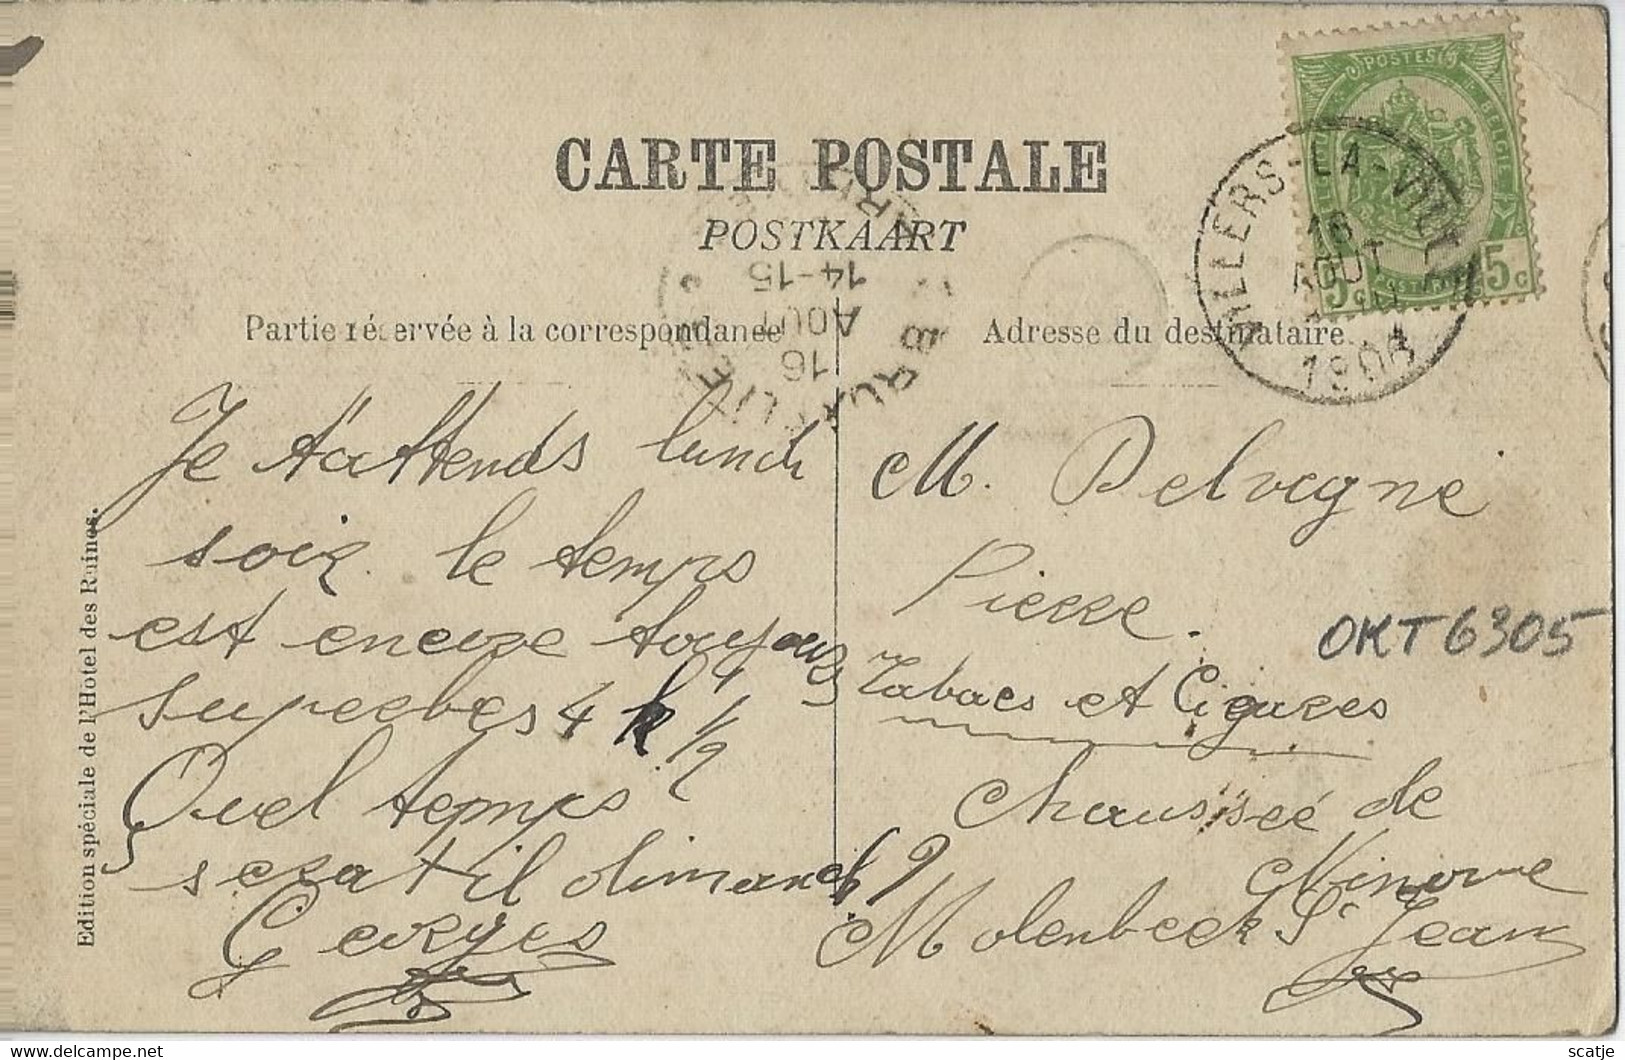 CARTE POSTALE
POSTKAART
Partie réservée à la correspondance
Adresse du destinataire
POSTES
BELGIE
5c 5c
VILLERS-LA-VILLE
16
AOUT
1906
14-15
AOUT
16
Je t'attends lundi
soir le temps
est encore toujours
superbes 4 h 1/2
Quel temps
serat il dimanch ?
Georges
M. Delvigne
Pierre.
Tabacs et Cigares
Chaussée de
Ninove
Molenbeek St Jean
OKT 6305
Edition spéciale de l'Hôtel des Ruines.
https://www.delcampe.net
scatje